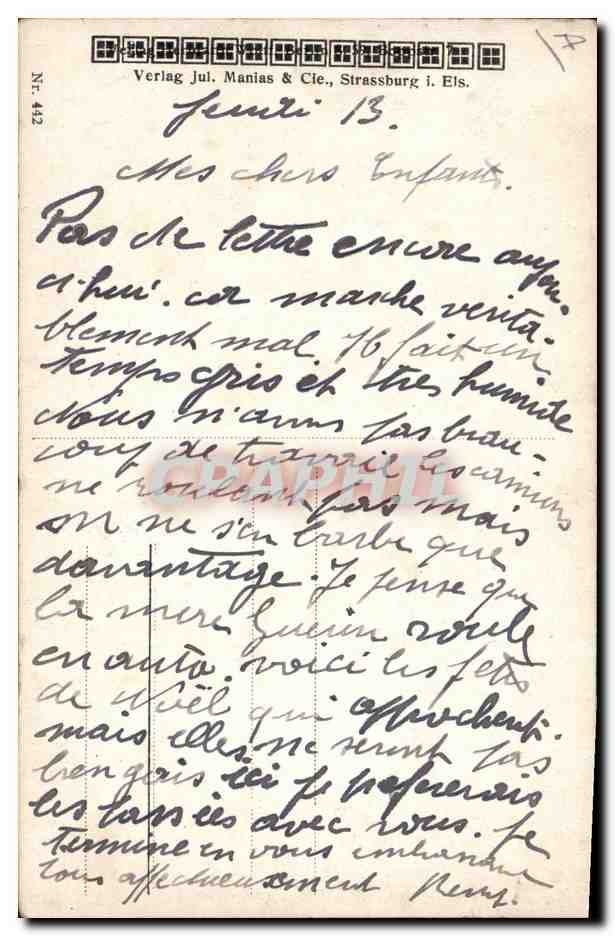 Verlag Jul. Manias & Cie., Strassburg i. Els.
Nr. 442
Jeudi 13.
Mes chers Enfants.
Pas de lettre encore aujou-
d'hui. ca marche verita-
blement mal. Il fait un
temps gris et tres humide
Nous n'avons pas beau-
coup de travail les camions
ne roulent pas mais
on ne s'en barbe que
davantage. Je pense que
la mere Guerin roule
en auto. voici les fetes
de Noël qui approchent.
mais elles ne seront pas
bien gais ici je prefererais
les passées avec vous. Je
termine en vous embrassant
tous affectueusement Remy.
CPAPHIL